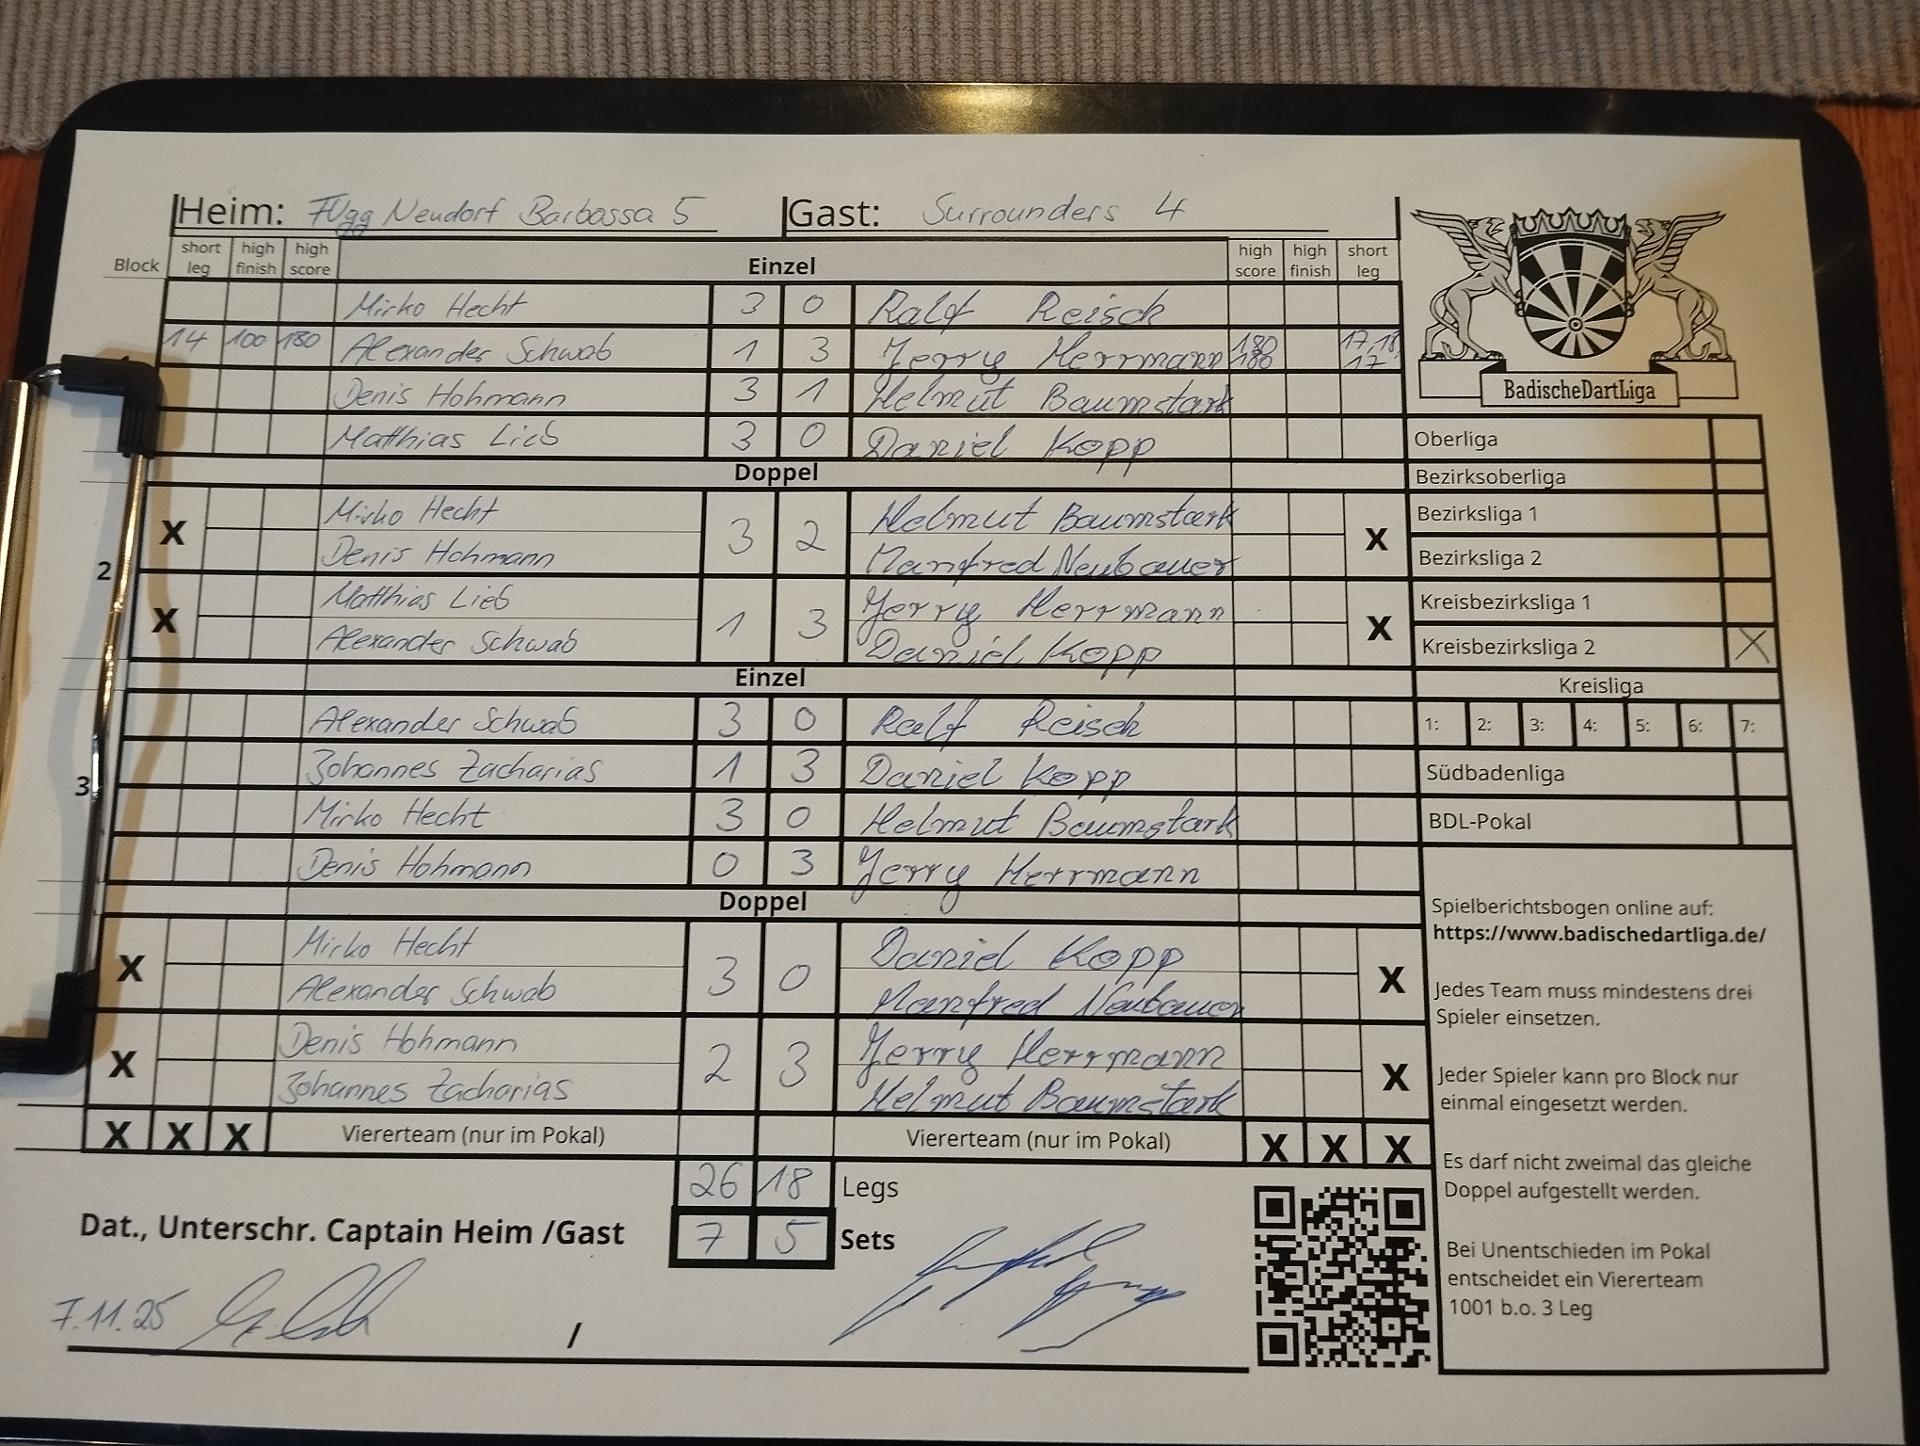 Heim: FVgg Neudorf Barbossa 5 Gast: Surrounders 4
Block short leg high finish high score Einzel high score high finish short leg
Mirko Hecht 3 0 Ralf Reisch
14 100 180 Alexander Schwab 1 3 Jerry Herrmann 180 180 17,18, 17
Denis Hohmann 3 1 Helmut Baumstark
Matthias Lieb 3 0 Daniel Kopp
Doppel
2
X Mirko Hecht 3 2 Helmut Baumstark X
Denis Hohmann Manfred Neubauer
X Matthias Lieb 1 3 Jerry Herrmann X
Alexander Schwab Daniel Kopp
Einzel
3
Alexander Schwab 3 0 Ralf Reisch
Johannes Zacharias 1 3 Daniel Kopp
Mirko Hecht 3 0 Helmut Baumstark
Denis Hohmann 0 3 Jerry Herrmann
Doppel
X Mirko Hecht 3 0 Daniel Kopp X
Alexander Schwab Manfred Neubauer
X Denis Hohmann 2 3 Jerry Herrmann X
Johannes Zacharias Helmut Baumstark
X X X Viererteam (nur im Pokal) Viererteam (nur im Pokal) X X X
26 18 Legs
Dat., Unterschr. Captain Heim /Gast 7 5 Sets
7.11.25 /
BadischeDartLiga
Oberliga
Bezirksoberliga
Bezirksliga 1
Bezirksliga 2
Kreisbezirksliga 1
Kreisbezirksliga 2 X
Kreisliga
1: 2: 3: 4: 5: 6: 7:
Südbadenliga
BDL-Pokal
Spielberichtsbogen online auf:
https://www.badischedartliga.de/
Jedes Team muss mindestens drei
Spieler einsetzen.
Jeder Spieler kann pro Block nur
einmal eingesetzt werden.
Es darf nicht zweimal das gleiche
Doppel aufgestellt werden.
Bei Unentschieden im Pokal
entscheidet ein Viererteam
1001 b.o. 3 Leg